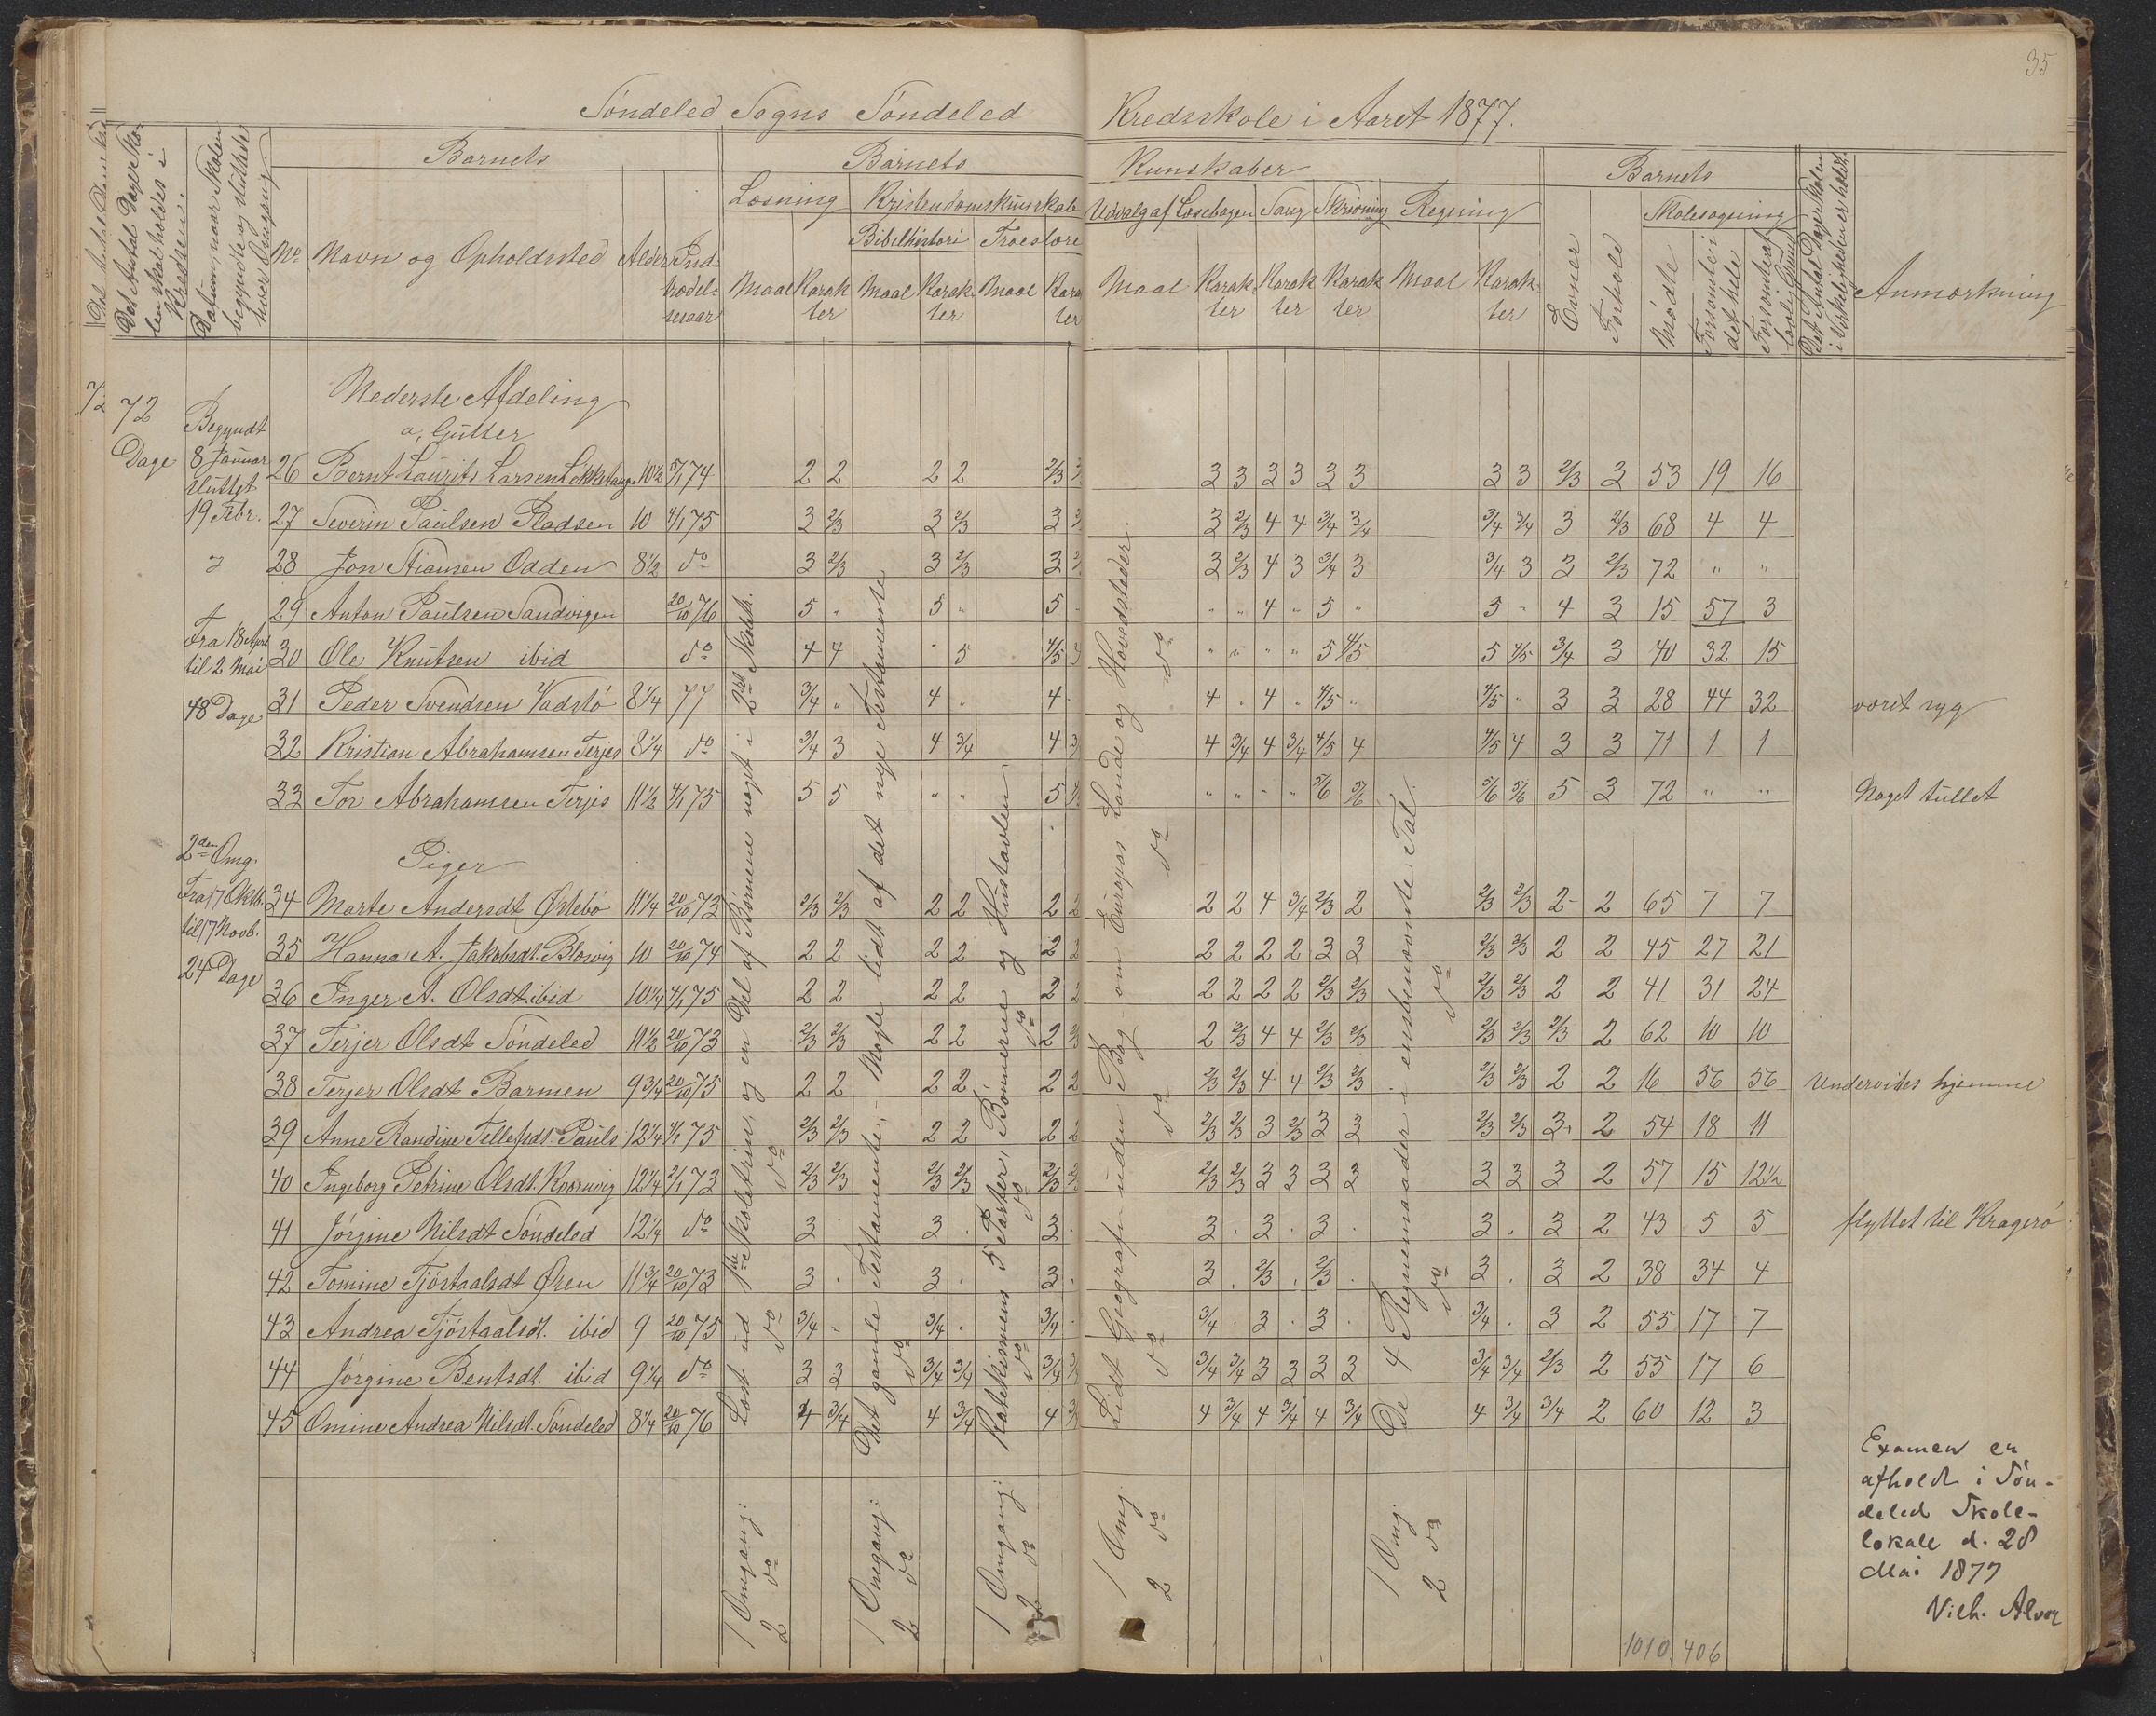 35
Söndeled Sogns Söndeled Kredsskole i Aaret 1877.
Det Antal Dage Sko-
len skal holdes i
Kredsen.
Datum, naar Skolen
begyndte og sluttede
hver Omgang
Barnets
Barnets Kunskaber
Barnets
Læsning Kristendomskunskab Udvalg af Læsebogen Sang Skrivning Regning
Skolesøgning
Bibelhistorie Troeslære
No Navn og Opholdssted Alder Ind-
trædel-
sesaar
Maal Karak
ter Maal Karak-
ter Maal Karak
ter
Maal Karak-
ter Karak
ter Karak
ter Maal Karak-
ter
Evner Forhold Mødte Forsømte i
det hele Forsømte af
lovl. Grund
Det Antal Dage Skolen
i Virkeligheden er holdt.
Anmærkning
Nederste Afdeling
a, Gutter
72
72
Dage
Begyndt
8 Januar
sluttet
19 Febr.
Fra 18 April
til 2 Mai
48 Dage
26 Bernt Laurits Larsen Lökketangen 10½ 5/1 74 2 2 2 2 2/3 3 3 3 3 3 3 3 3 2/3 2 53 19 16
27 Severin Paulsen Pladsen 10 4/1 75 3 2/3 3 2/3 3 3 2/3 4 4 3/4 3/4 3/4 3/4 3 2/3 68 4 4
28 Jon Stiansen Odden 8½ do 3 2/3 3 2/3 3 3 2/3 4 3 3/4 3 3/4 3 3 2/3 72 " "
29 Anton Paulsen Sandvigen 20/10 76 5 " 5 " 5 " " 4 " 5 " 5 " 4 3 15 57 3
30 Ole Knutsen ibid do 4 4 " 5 4/5 " " " " 5 4/5 5 4/5 3/4 3 40 32 15
31 Peder Svendsen Vadstö 8¼ 77 3/4 " 4 " 4 4 " 4 " 4/5 " 4/5 " 3 3 28 44 32 været syg
32 Kristian Abrahamsen Terjes 8¼ do 3/4 3 4 3/4 4 4 3/4 4 3/4 4/5 4 4/5 4 3 3 71 1 1
33 Tor Abrahamsen Terjes 11½ 4/1 75 5 5 " " 5 " " " " 5/6 5/6 5/6 5/6 5 3 72 " " Noget tullet
Piger
2den Omg.
Fra 17 Oktb.
til 17 Novb.
24 Dage
34 Marte Andersdt Østebö 11¼ 20/10 73 2/3 2/3 2 2 2 2 2 2 4 3/4 2/3 2 2/3 2/3 2 2 65 7 7
35 Hanna A. Jakobsdt. Blesvig 10 20/10 74 2 2 2 2 2 2 2 2 2 3 3 2/3 2/3 2 2 45 27 21
36 Inger A. Olsdt ibid 10¼ 4/1 75 2 2 2 2 2 2 2 2 2 2 2/3 2/3 2/3 2/3 2 2 41 31 24
37 Terjer Olsdt Söndeled 11½ 20/10 73 2/3 2/3 2 2 2 2/3 2 2/3 4 4 2/3 2/3 2/3 2/3 2/3 2 62 10 10
38 Terjer Olsdt Barmen 9¾ 20/10 75 2 2 2 2 2 2 2/3 2/3 4 4 2/3 2/3 2/3 2/3 2 2 16 56 56 Undervises hjemme
39 Anne Randine Tellefsdt. Pauls 12¼ 4/1 75 2/3 2/3 2 2 2 2 2/3 2/3 3 2/3 3 3 2/3 2/3 3 2 54 18 11
40 Ingeborg Petrine Olsdt. Kvernvig 12¼ 2/1 73 2/3 2/3 2/3 2/3 2/3 2/3 2/3 2/3 3 3 3 3 3 3 3 2 57 15 12½
41 Jörgine Nilsdt Söndeled 12¼ do 3 . 3 . 3 . 3 . 3 . 3 . 3 . 3 2 43 5 5 flyttet til Kragerö
42 Tomine Tjöstaalsdt Øren 11¾ 20/10 73 3 . 3 . 3 . 3 . 2/3 . 2/3 . 3 . 3 2 38 34 4
43 Andrea Tjöstaalsdt. ibid 9 20/10 75 3/4 . 3/4 . 3/4 . 3/4 . 3 . 3 . 3/4 . 3 2 55 17 7
44 Jörgine Bentsdt. ibid 9¼ do 3 3 3/4 3/4 3/4 3/4 3/4 3 3 3 3 3/4 3/4 2/3 2 55 17 6
45 Omine Andrea Nilsdt. Söndeled 8¼ 20/10 76 4 3/4 4 3/4 4 4 3/4 4 3/4 4 3/4 4 3/4 3/4 2 60 12 3
1 Omgang: Læst ud 1ste Skoletrin, og en Del af Börnene noget i 2det Skoletr.
2 do do do
1 Omgang: Det gamle Testamente, – Nogle lidt af det nye Testamente
2 do do
1 Omgang: Katekismens 5 Parter, Bönnerne og Hustavlen
2 do do do do
1 Omg. Lidt Geografi uden Bog om Europas Lande og Hovedsteder.
2 do do do do do
1 Omg. De 4 Regnemaader i ensbenævnte Tal.
2 do do do
Examen er
afholdt i Sön-
deled Skole-
lokale d. 28
Mai 1877
Vilh. Alver
1010 406